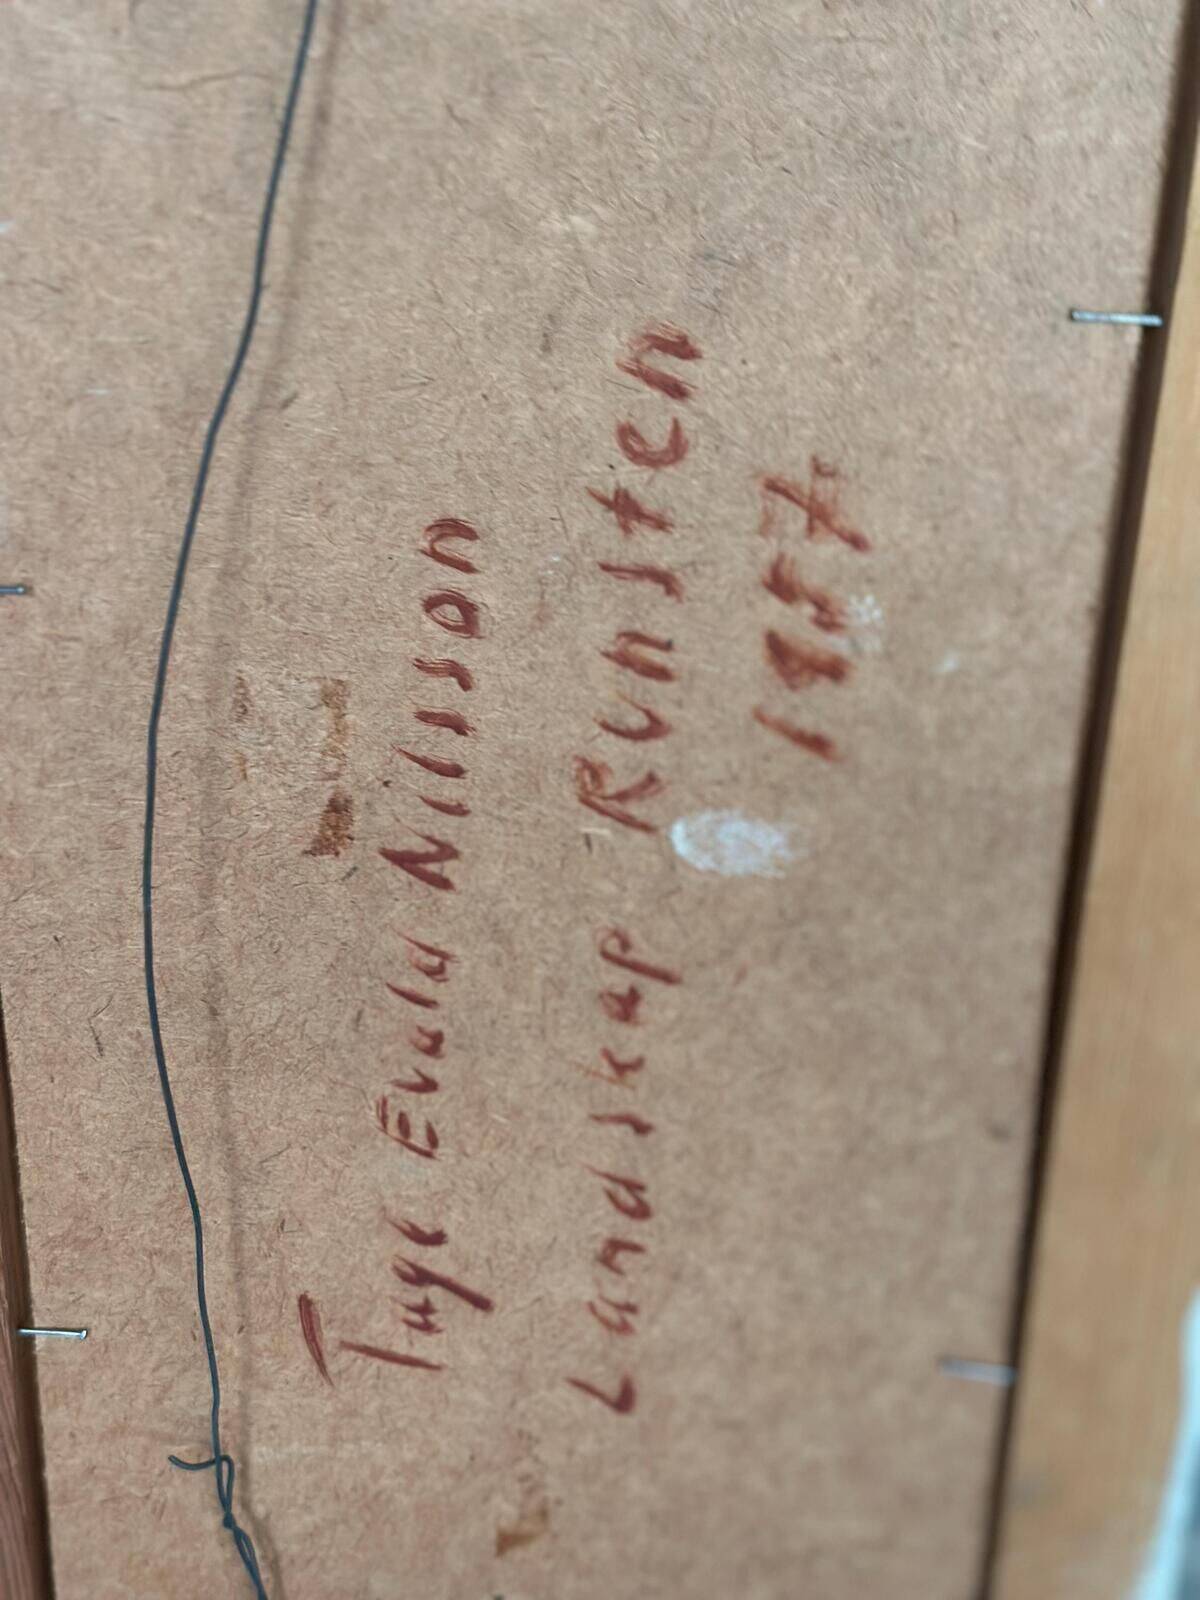 Tage Evald Nilsson
Landskap Runsten
1957